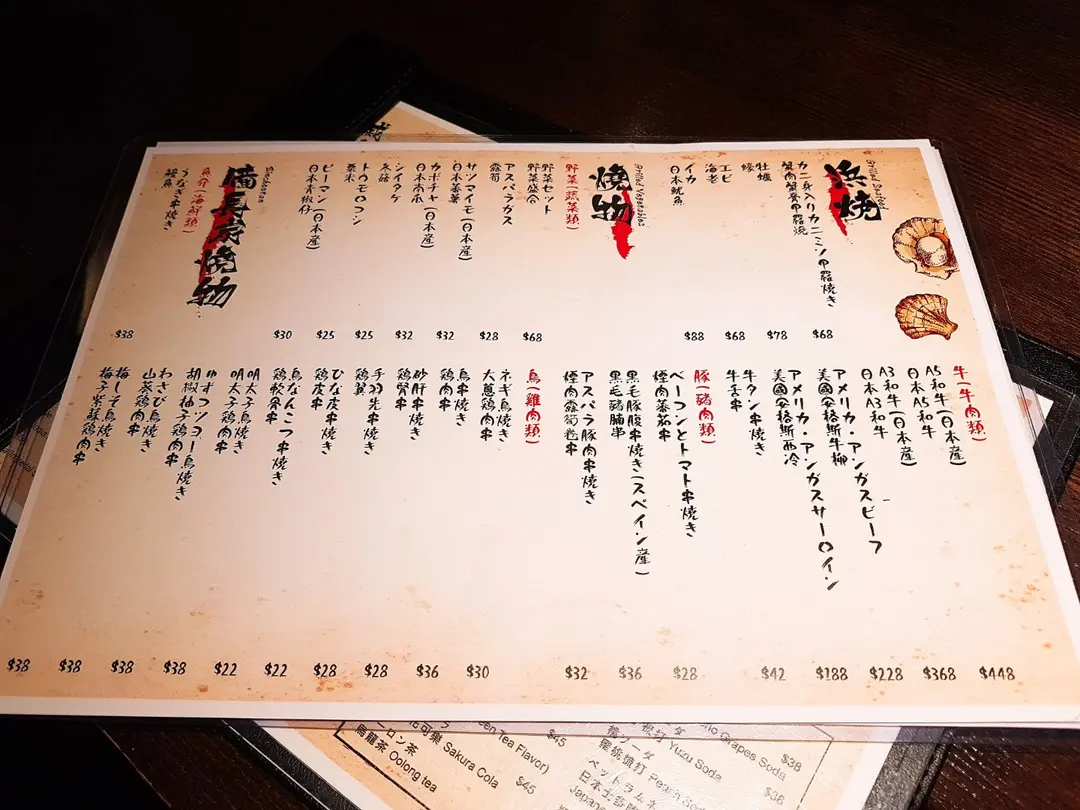 浜焼
Grilled Seafood
カニ身入りカニミソ甲羅焼き
蟹肉蟹膏甲羅燒
$68
牡蠣
蠔
$78
エビ
海老
$68
イカ
日本魷魚
$88
燒物
Grilled Vegetables
野菜(蔬菜類)
野菜セット
野菜盛合
$68
アスパラガス
露筍
$28
サツマイモ(日本産)
日本蕃薯
$32
カボチャ(日本産)
日本南瓜
$32
シイタケ
冬菇
$25
トウモロコシ
粟米
$25
ピーマン(日本産)
日本青椒仔
$30
備長炭燒物
魚介(海鮮類)
うなぎ串焼き
鰻魚
$38
牛(牛肉類)
A5和牛(日本産)
日本A5和牛
$448
A3和牛(日本産)
日本A3和牛
$368
アメリカ・アンガスビーフ
美國安格斯牛柳
$228
アメリカ・アンガスサーロイン
美國安格斯西冷
$188
牛タン串焼き
牛舌串
$42
豚(豬肉類)
ベーコンとトマト串焼き
煙肉蕃茄串
$28
黒毛豚腹串焼き(スペイン産)
黑毛豬腩串
$36
アスパラ豚肉串焼き
煙肉露筍卷串
$32
鳥(雞肉類)
ネギ鳥焼き
大蔥鶏肉串
$30
鳥串焼き
鶏肉串
$36
砂肝串焼き
鶏腎串
$28
手羽先串焼き
鶏翼
$28
ひな皮串焼き
鶏皮串
$22
鳥なんこつ串焼き
鶏軟骨串
$22
明太子鳥焼き
明太子鶏肉串
$38
ゆずコショー鳥焼き
胡椒柚子鶏肉串
$38
わさび鳥焼き
山葵鶏肉串
$38
梅しそ鳥焼き
梅子紫蘇鶏肉串
$38
Grapes Soda
$38
Yuzu Soda
$38
Peach
ペットラムネ
Tea Flavor)
$45
可樂 Sakura Cola
$45
ーロン茶
烏龍茶 Oolong tea